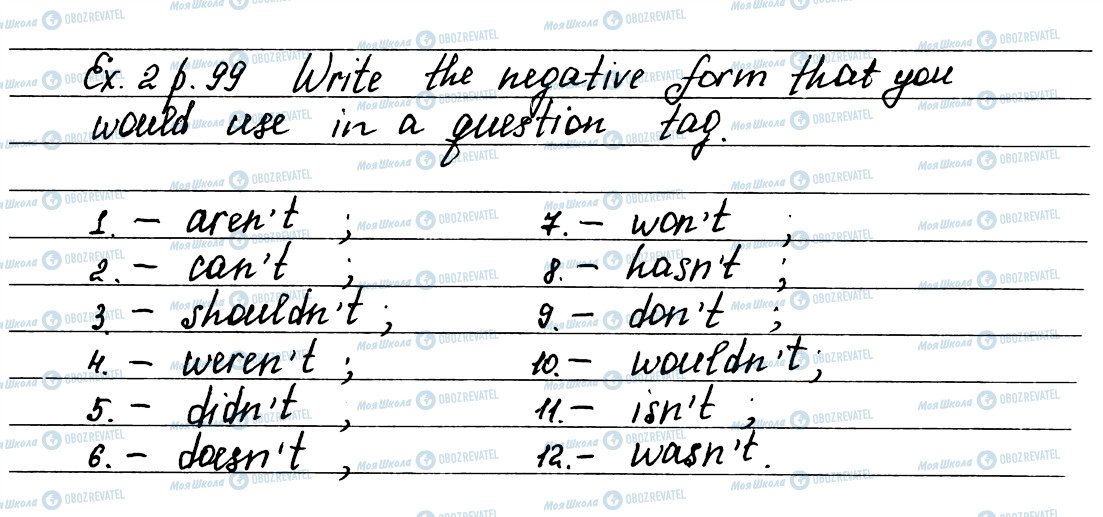 Ex. 2 p. 99 Write the negative form that you
would use in a question tag.
1. – aren't ;
2. – can't ;
3. – shouldn't ;
4. – weren't ;
5. – didn't ;
6. – doesn't ;
7. – won't ;
8. – hasn't ;
9. – don't ;
10. – wouldn't ;
11. – isn't ;
12. – wasn't .
МОЯ ШКОЛА OBOZREVATEL